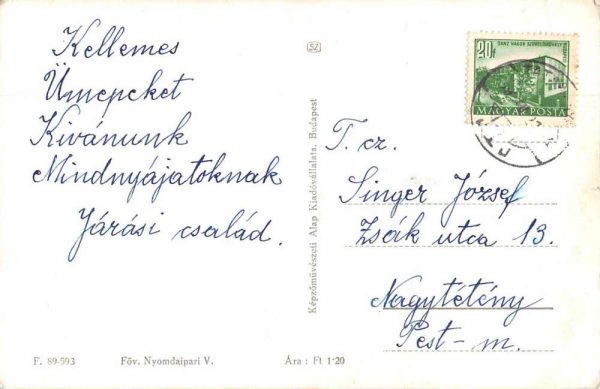 Kellemes
Ünnepeket
Kivánunk
Mindnyájatoknak
Járási család.
SZ
Képzőművészeti Alap Kiadóvállalata, Budapest
20f
GANZ VAGON SZERELŐMŰHELY
MAGYAR POSTA
T. cz.
Singer József
Zsák utca 13.
Nagytétény
Pest-m.
F. 89-593 Föv. Nyomdaipari V. Ára : Ft 1·20